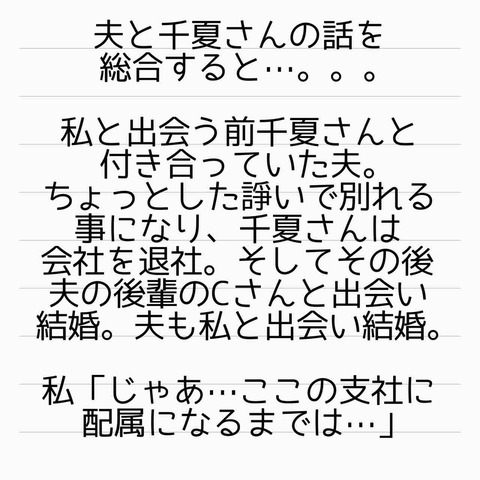 夫と千夏さんの話を
総合すると…。。。
私と出会う前千夏さんと
付き合っていた夫。
ちょっとした諍いで別れる
事になり、千夏さんは
会社を退社。そしてその後
夫の後輩のCさんと出会い
結婚。夫も私と出会い結婚。
私「じゃあ…ここの支社に
配属になるまでは…」